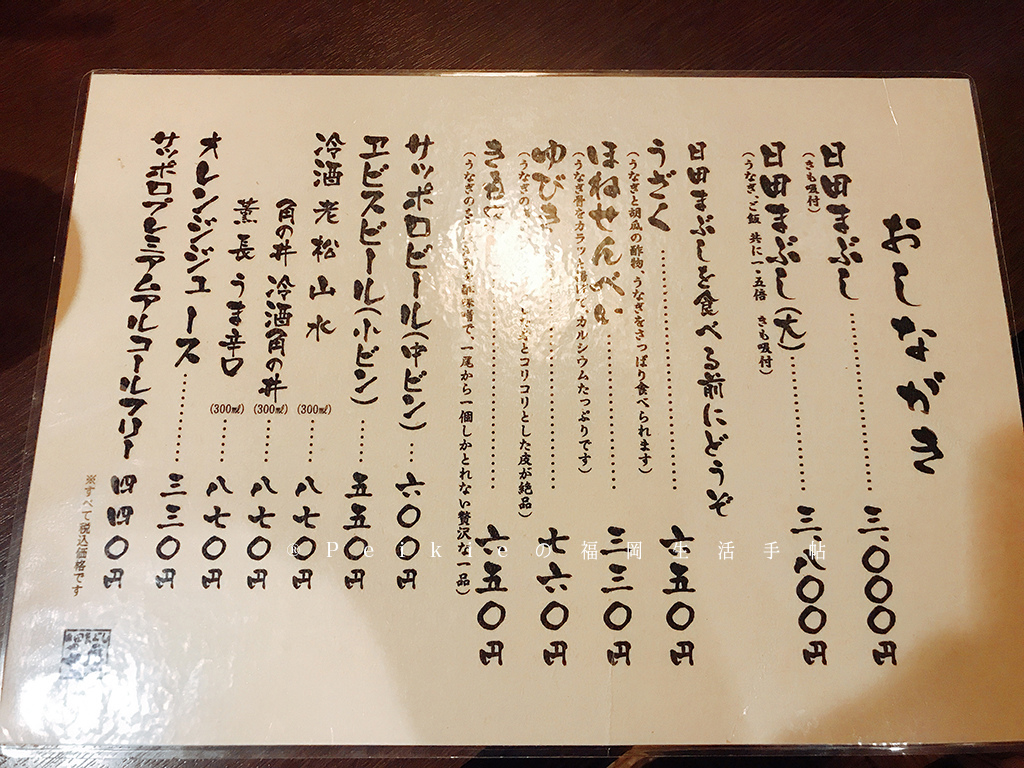 おしながき
日田まぶし………三、〇〇〇円
(きも吸付)
日田まぶし(大)………三、八〇〇円
(うなぎ、ご飯 共に一・五倍 きも吸付)
日田まぶしを食べる前にどうぞ
うざく………六五〇円
(うなぎと胡瓜の酢物、うなぎをさっぱり食べられます)
ほねせんべい………三三〇円
(うなぎ骨をカラッと揚げて、カルシウムたっぷりです)
ゆびき………七六〇円
(うなぎの コリコリとした皮が絶品)
き………六五〇円
(うなぎの 一尾から一個しかとれない贅沢な一品)
サッポロビール(中ビン)……六〇〇円
ヱビスビール(小ビン)……五五〇円
冷酒 老松 山水(300㎖)……八七〇円
角の井 冷酒角の井(300㎖)……八七〇円
薫長 うま辛口(300㎖)……八七〇円
オレンジジュース………三三〇円
サッポロプレミアムアルコールフリー 四四〇円
※すべて税込価格です
®Peikieの福岡生活手帖